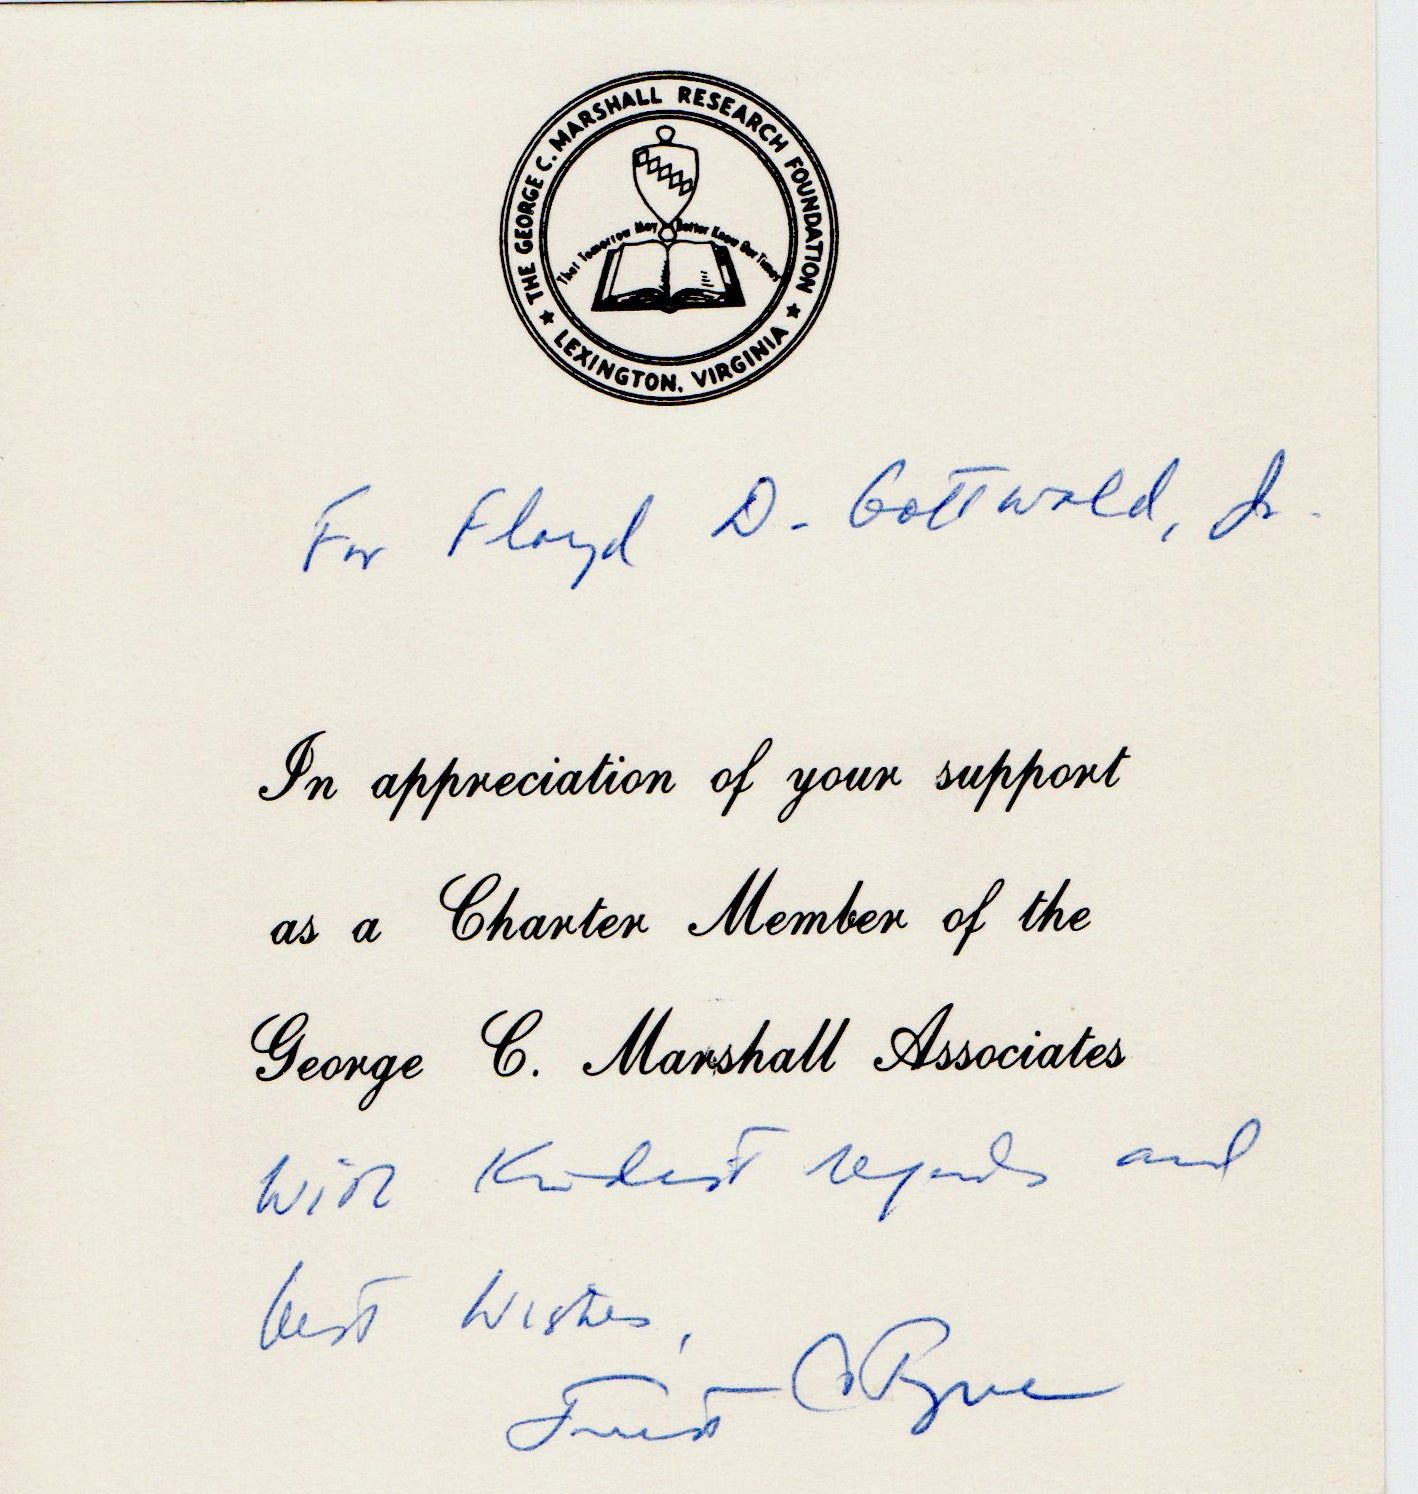 THE GEORGE C. MARSHALL RESEARCH FOUNDATION
That Tomorrow May Better Know Our Times
★ LEXINGTON, VIRGINIA ★
For Floyd D. Gottwald, Jr.
In appreciation of your support
as a Charter Member of the
George C. Marshall Associates
With Kindest regards and
best wishes,
Forrest C Pogue